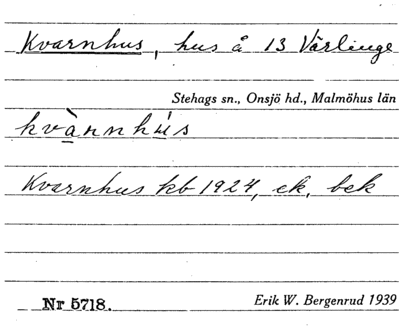 Kvarnhus, hus å 13 Värlinge
Stehags sn., Onsjö hd., Malmöhus län
kvànnhús
Kvarnhus kb 1924, ek, bek
Nr 5718.
Erik W. Bergenrud 1939